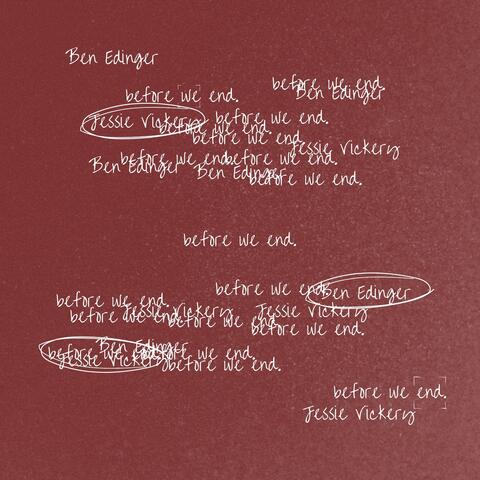 Ben Edinger
before we end.
before we end.
Ben Edinger
Jessie Vickery
before we end.
before we end.
before we end.
Jessie Vickery
before we end.
before we end.
Ben Edinger
Ben Edinger
before we end.
before we end.
before we end.
Ben Edinger
before we end.
Jessie Vickery
Jessie Vickery
before we end.
before we end.
before we end.
Ben Edinger
before we end.
before we end.
Jessie Vickery
before we end.
before we end.
Jessie Vickery